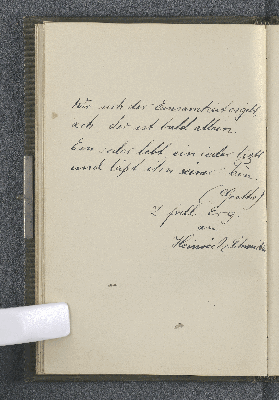 Wer sich der Einsamkeit ergibt
ach der ist bald allein.
Ein jeder lebt, ein jeder liebt
und läßt ihn seiner Pein.
(Goethe)
Z. frdl. Erg.
an
Heinrich